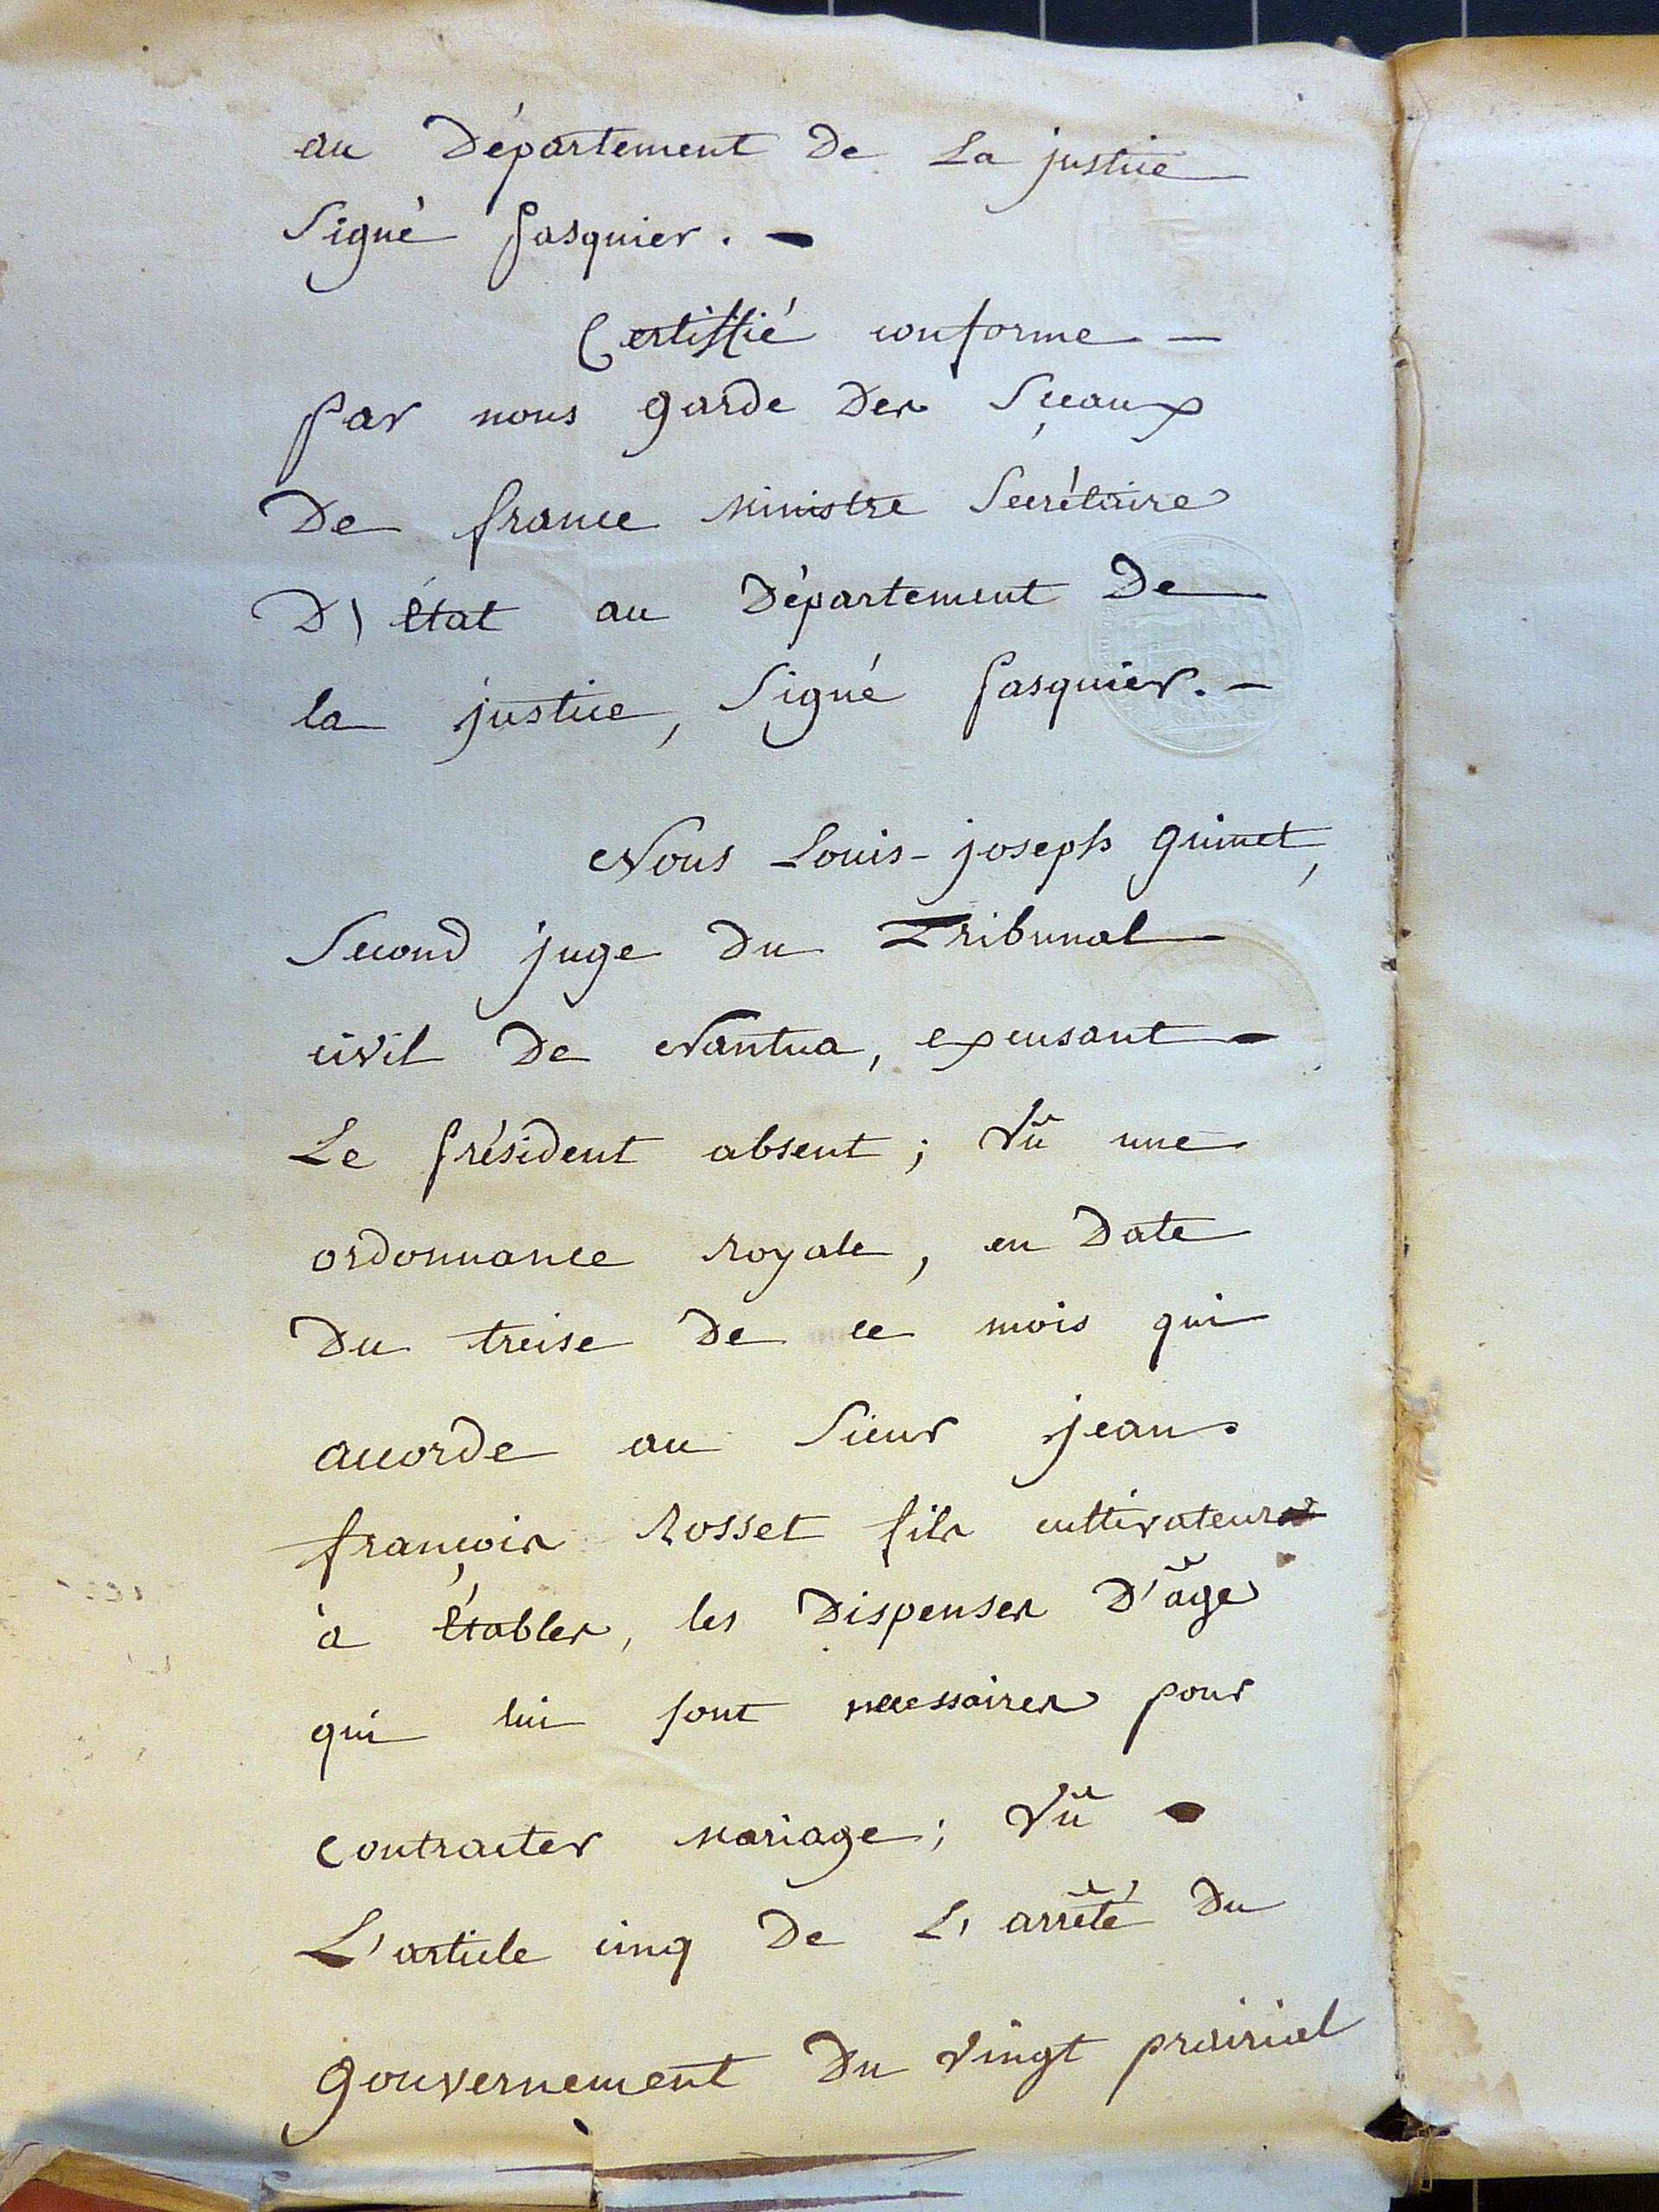 au Département De La justice
Signé Pasquier. -
Certiffié conforme -
par nous garde Des Sçeaux
De france Ministre Secrétaire
D'état au Département De
la justice, Signé Pasquier. -
Nous Louis-joseph guinet,
Second juge Du Tribunal
civil De Nantua, expensant -
Le président absent ; Vû une
ordonnance royale, en Date
Du treise De ce mois qui
accorde au Sieur jean
françois Rosset fils cultivateur
à Étables, les Dispenses D'âge
qui lui sont necessaires pour
Contracter Mariage ; Vû -
L'article cinq De L'arrêté Du
gouvernement Du vingt prairial